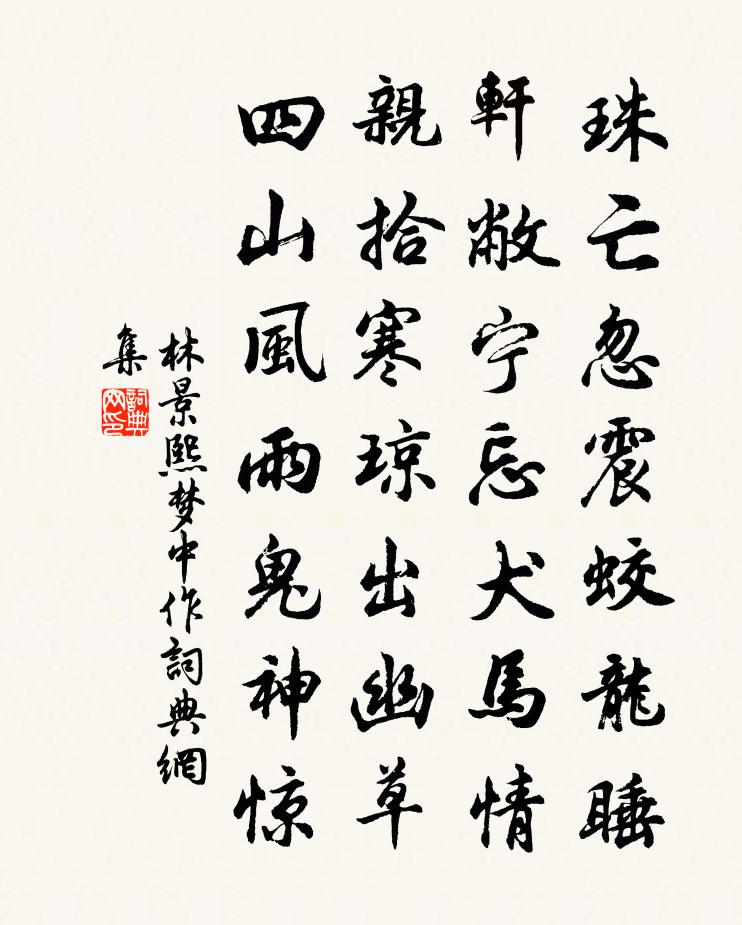 珠亡忽震蛟龍睡
軒敝宁忘犬馬情
親拾寒琼出幽草
四山風雨鬼神惊
林景熙梦中作詞典網
集
詞典
网印